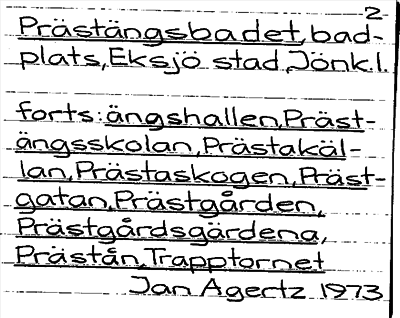 2
Prästängsbadet, bad-
plats, Eksjö stad, Jönk.l.
forts: ängshallen, Präst-
ängsskolan, Prästakäl-
lan, Prästaskogen, Präst-
gatan, Prästgården,
Prästgårdsgärdena,
Prästån, Trapptornet
Jan Agertz 1973